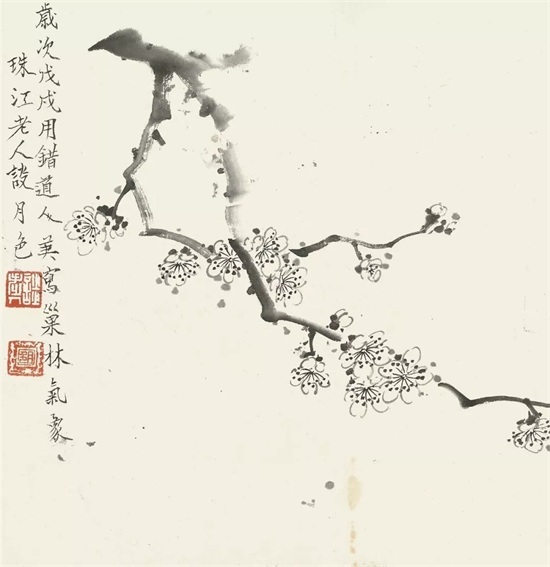 歲次戊戌用錯道人美寫巢林氣象
珠江老人談月色